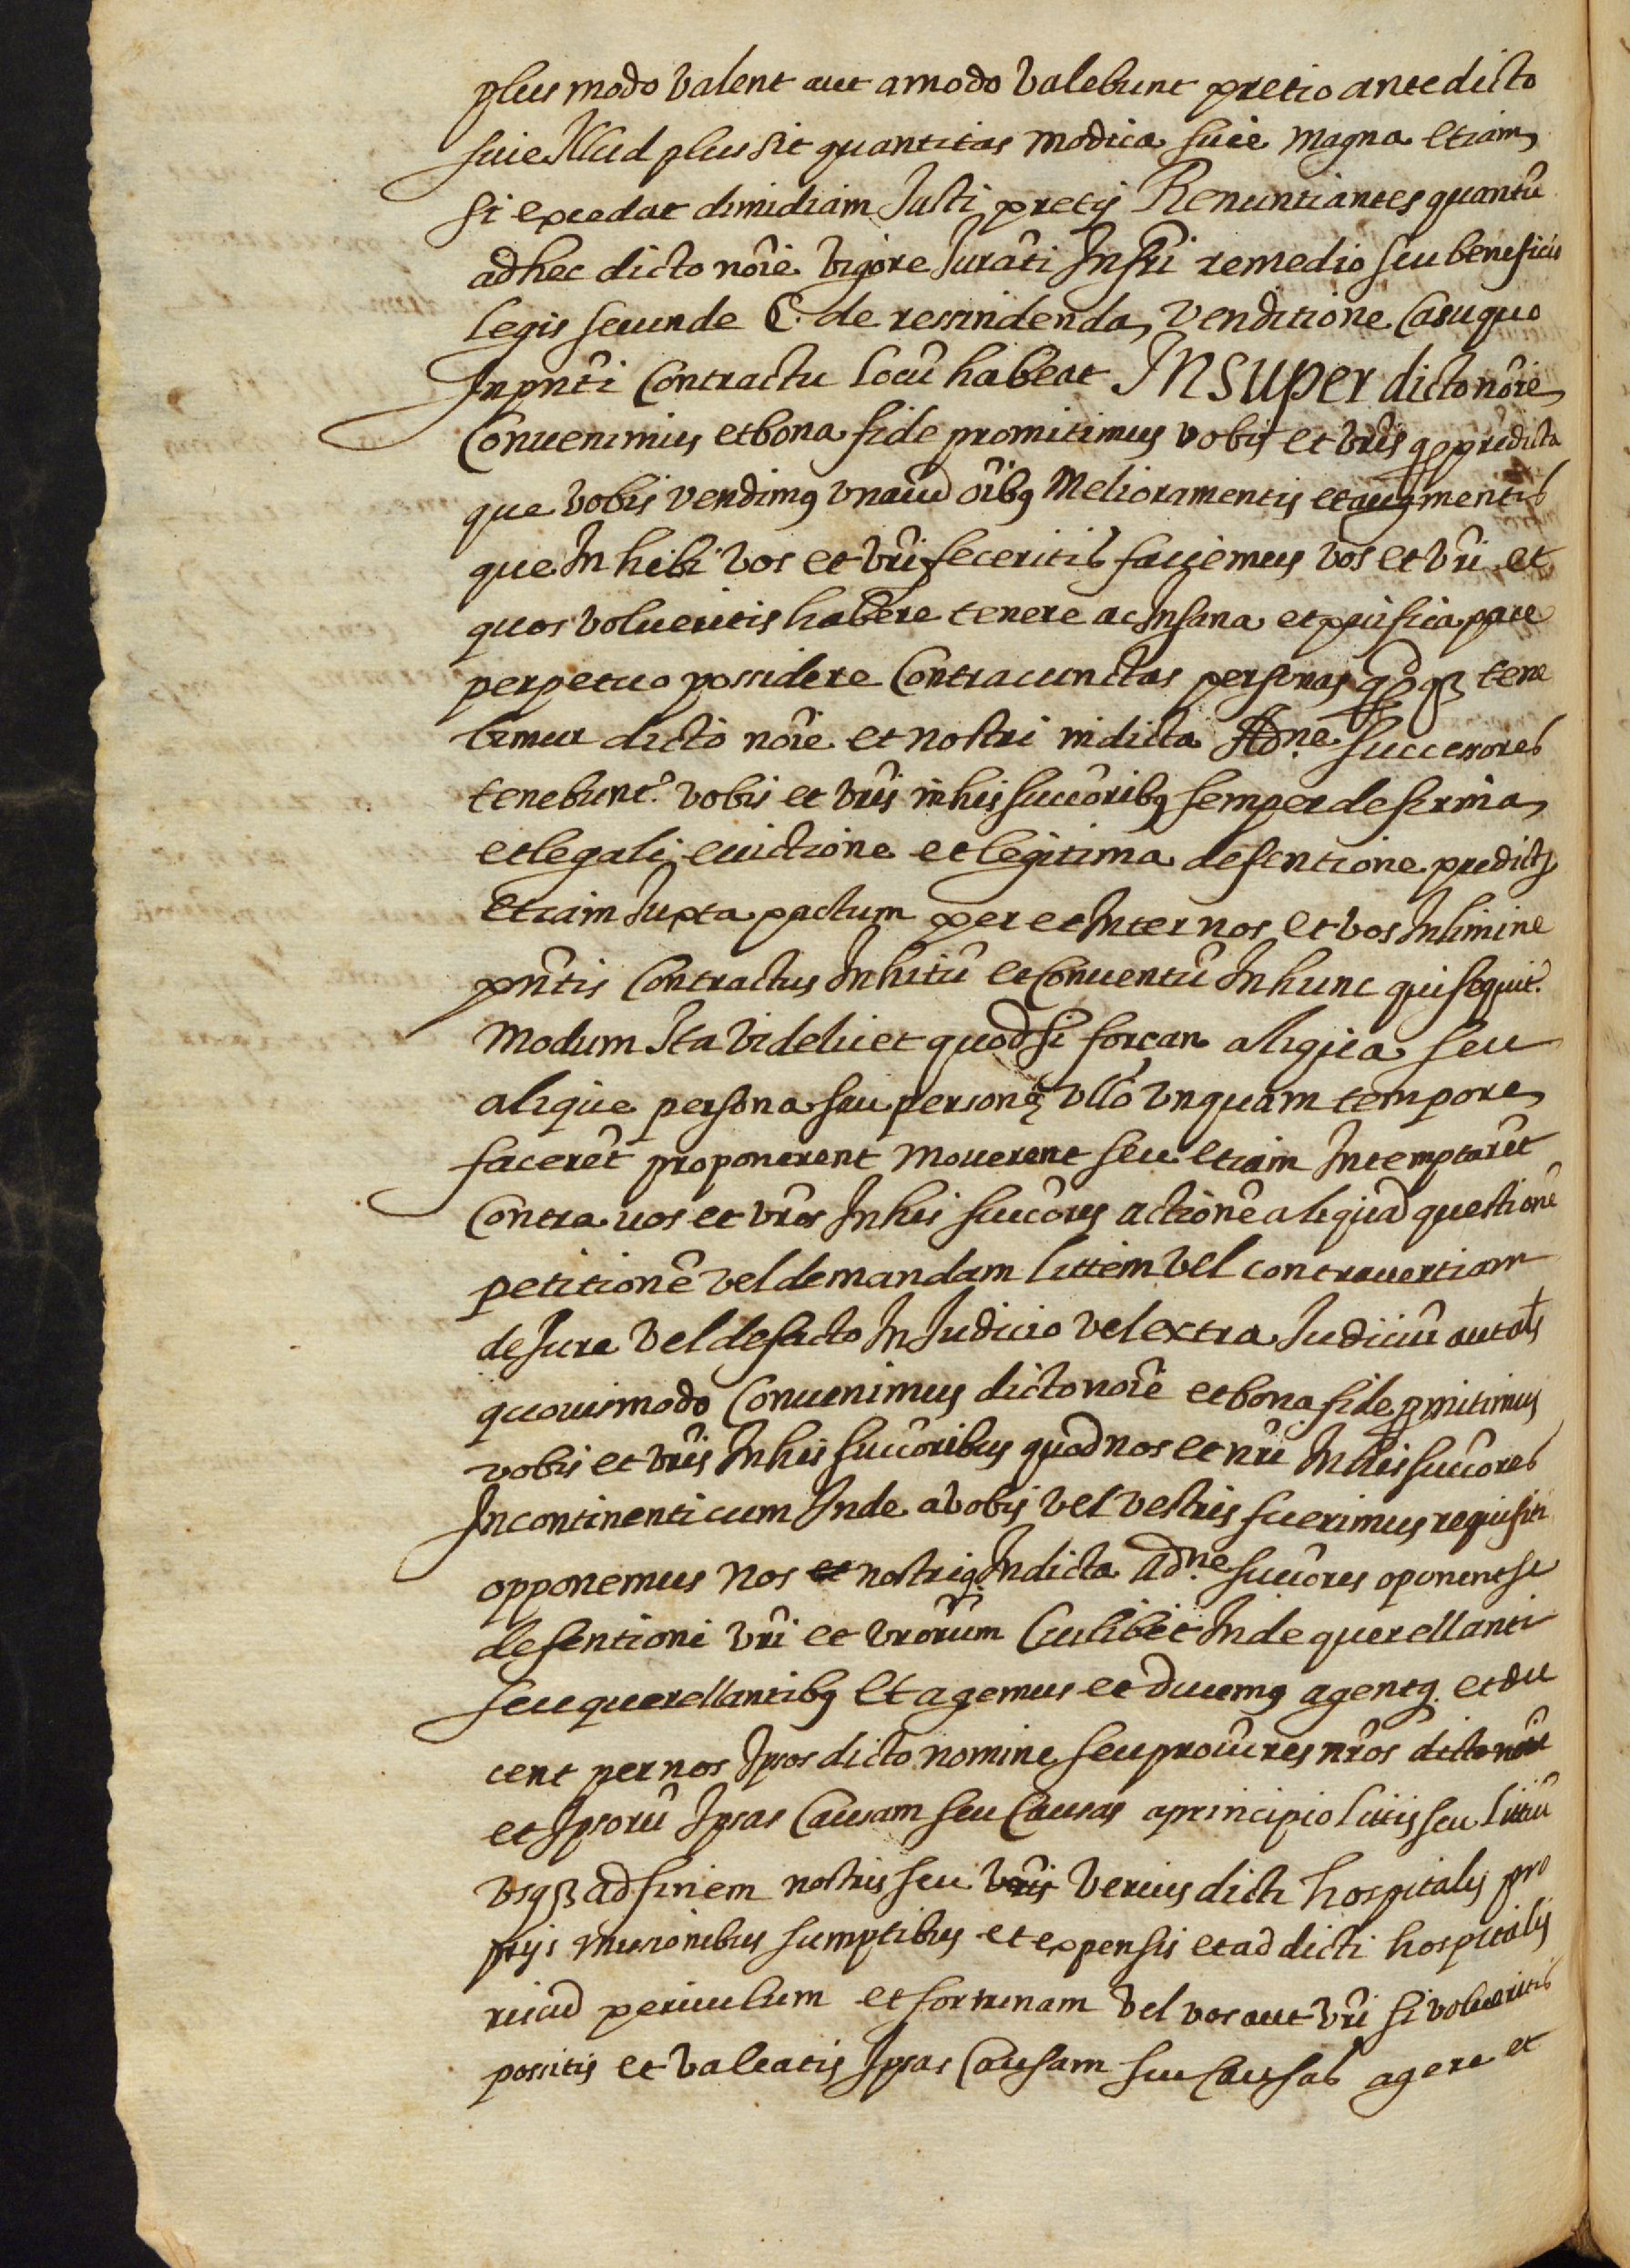 plus modo valent aut amodo valebunt pretio antedicto
siue Illud plus sit quantitas modica siue magna etiam
si excedat dimidiam Justi pretij Renuntiantes quantũ
ad hec dicto nõie vigore Jurãti Infrĩ remedio seu beneficio
legis secunde C. de rescindenda venditione Casu quo
In pñti Contractu locũ habeat INSUPER dicto nõie
Conuenimus et bona fide promitimus vobis et vr̃is qd predicta
que vobis vendimꝰ vnacũ oĩbꝰ Melioramentis et augmentis
que In hibi vos et vr̃i feceritis faciemus vos et vr̃i et
quos volueritis habere tenere ac In sana et pacifica pace
perpetuo possidere Contra cunctas personas qdqꝫ tene
bimur dicto nõie et nostri in dicta Adne. successores
tenebunt.ᷣ vobis et vr̃is in his succõribꝰ semper de firma
et legali euictione et legitima defentione predictꝫ
etiam Iuxta pactum per et Inter nos et vos In limine
pñtis Contractus Inhitũ et Conuentũ In hunc qui sequit.ᷣ
modum Ita videlicet quod si forçan aliqua seu
alique persona seu personę vllo vnquam tempore
facerẽt proponerent mouerent seu etiam Intemptarẽt
Contra uos et vr̃os In his succõres actionẽ aliquã questionẽ
petitionẽ vel demandam littem vel contrauertiam
de Jure vel de facto In Judicio vel extra Judiciũ aut als
quouismodo Conuenimus dicto nõie et bona fide ꝓmitimus
vobis et vr̃is In his succõribus quod nos et nr̃i In his succõres
Incontinenti cum Inde a vobis vel vestris fuerimus requisiti
opponemus nos et nostriqꝫ In dicta Adne. succõres oponent se
defentioni vr̃i et vr̃orum Cuilibet Inde querellanti
seu querellantibꝰ Et agemus et ducemꝰ agentqꝫ et du
cent per nos Ipsos dicto nomine seu procũres nr̃os dicto nõie
et Ipsorũ Ipsas Causam seu Causas a principio littis seu littiũ
vsqꝫ ad finem nostris seu vr̃is verius dicti hospitalis pro
prijs missionibus sumptibus et expensis et ad dicti hospitalis
ricũ periculum et fortunam vel vos aut vr̃i si volueritis
possitis et valeatis Ipsas Causam seu Causas agere et